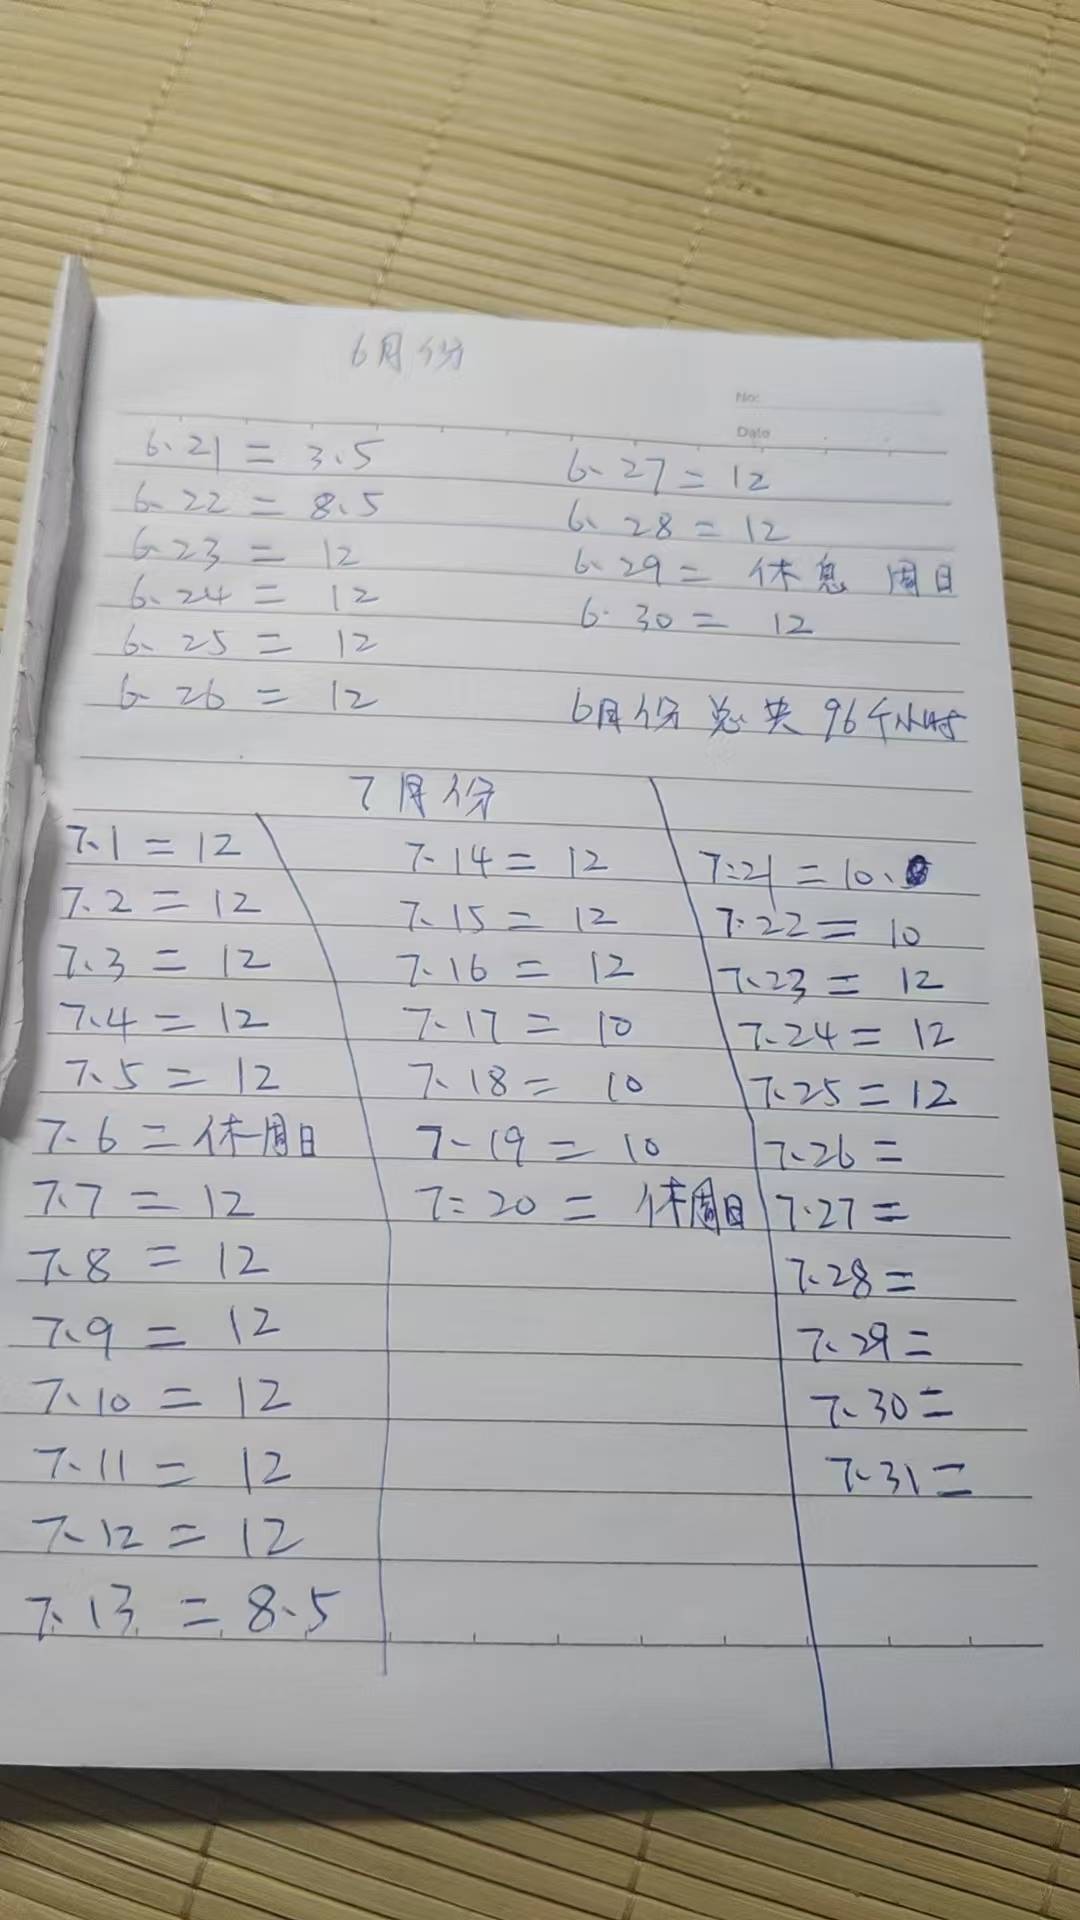 6月份
No:
Date
6、21 = 3、5
6、22 = 8、5
6、23 = 12
6、24 = 12
6、25 = 12
6、26 = 12
6、27 = 12
6、28 = 12
6、29 = 休息 周日
6、30 = 12
6月份总共96个小时
7月份
7、1 = 12
7、2 = 12
7、3 = 12
7、4 = 12
7、5 = 12
7、6 = 休周日
7、7 = 12
7、8 = 12
7、9 = 12
7、10 = 12
7、11 = 12
7、12 = 12
7、13 = 8、5
7、14 = 12
7、15 = 12
7、16 = 12
7、17 = 10
7、18 = 10
7、19 = 10
7、20 = 休周日
7、21 = 10、
7、22 = 10
7、23 = 12
7、24 = 12
7、25 = 12
7、26 =
7、27 =
7、28 =
7、29 =
7、30 =
7、31 =